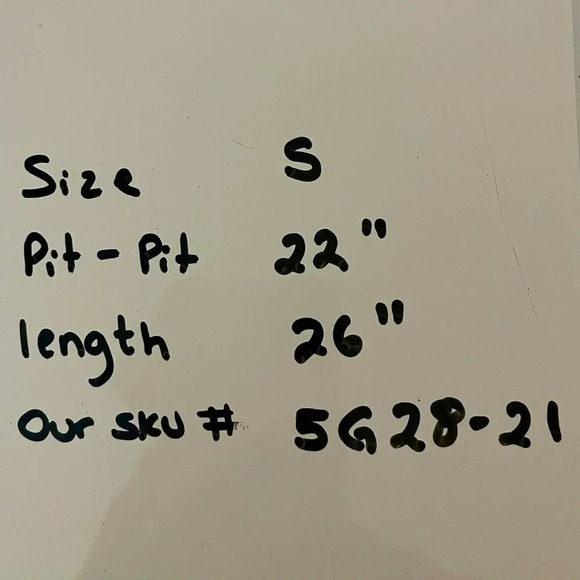 Size S
Pit - Pit 22"
length 26"
Our SKU # 5G28-21